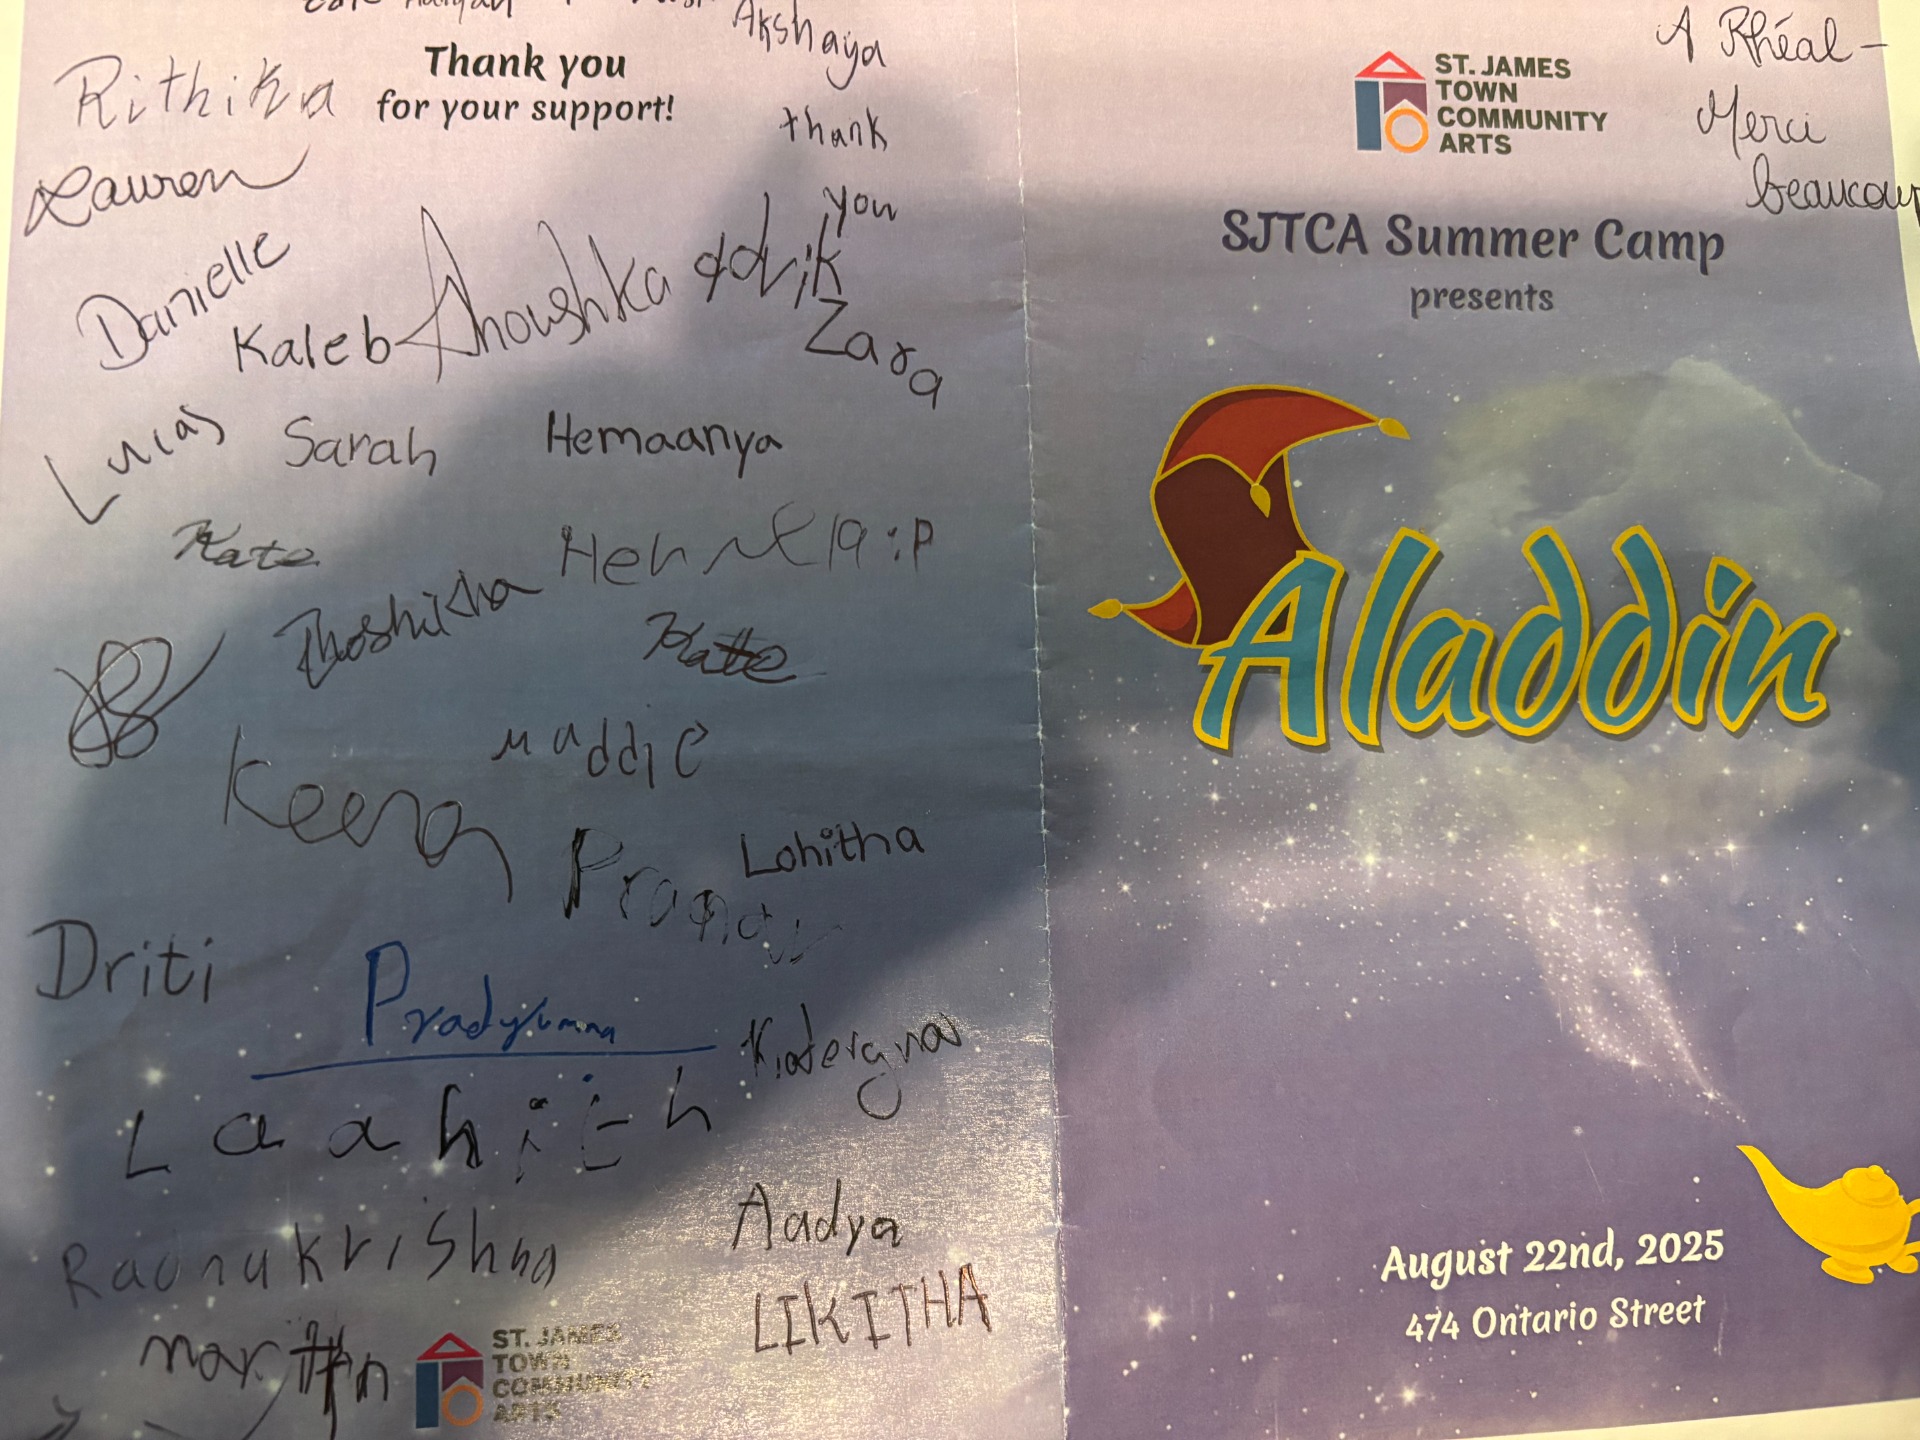 Akshaya
thank
you
Thank you
for your support!
Rithika
Lauren
Danielle
Kaleb
Anoushka
Advik
Zara
Lucas
Sarah
Hemaanya
Kate
:P
Maddie
Keena
Lohitha
Driti
Pradyumna
Laahith
Aadya
LIKITHA
ST. JAMES
TOWN
COMMUNITY
ARTS
ST. JAMES
TOWN
COMMUNITY
ARTS
A Rhéal -
Merci
beaucoup
SJTCA Summer Camp
presents
Aladdin
August 22nd, 2025
474 Ontario Street